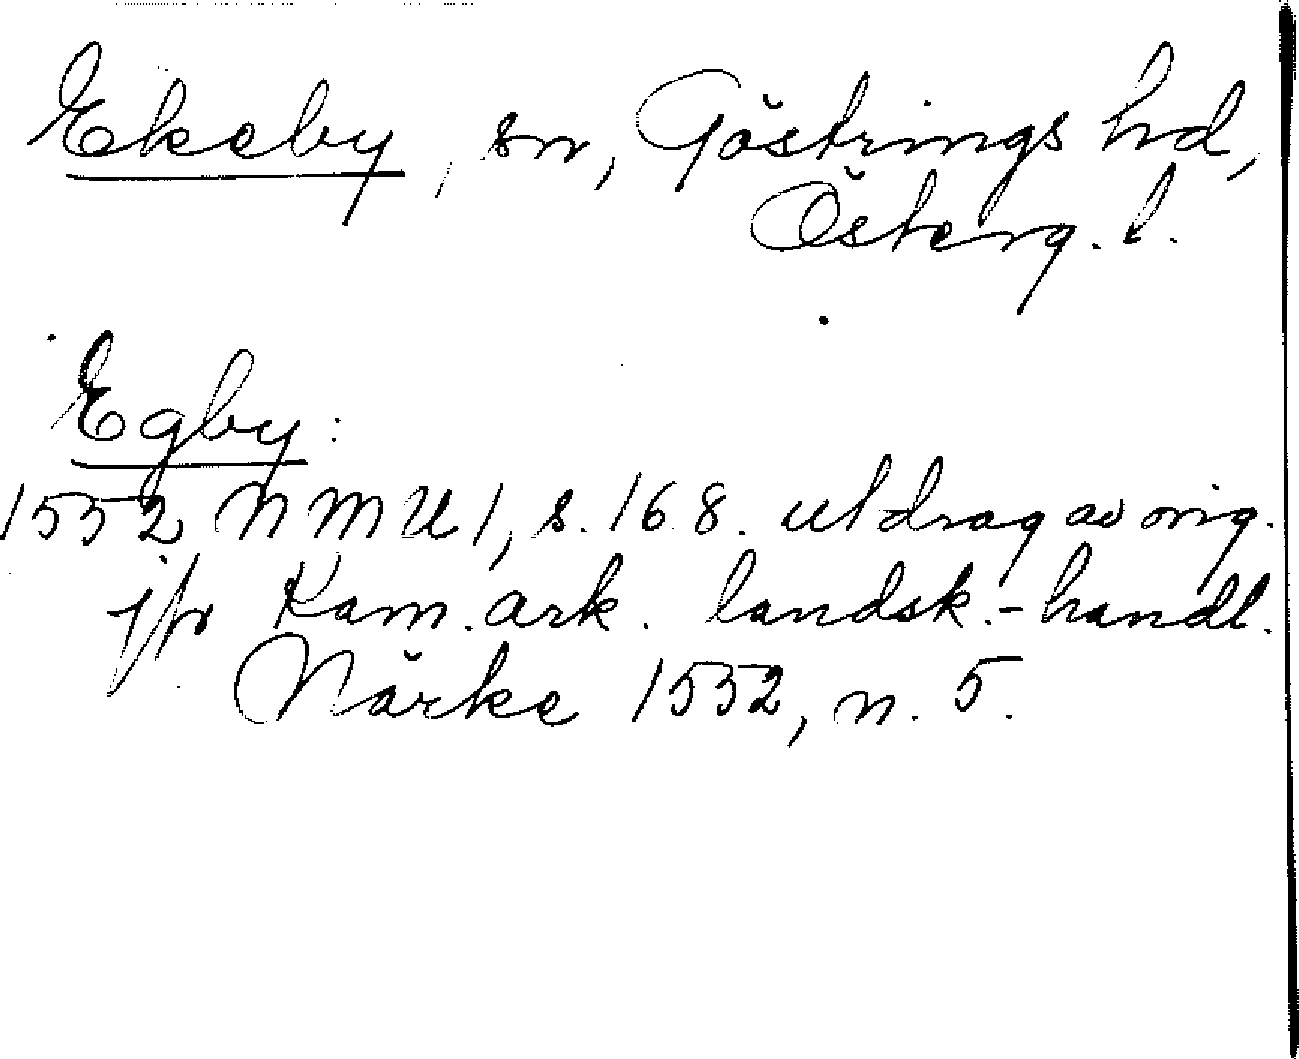 Ekeby, sn, Göstrings hd,
Österg. l.
Egby:
1552 NMU 1, s. 168. utdrag av orig.
jfr Kam. ark. landsk.-handl.
Närke 1552, n. 5.